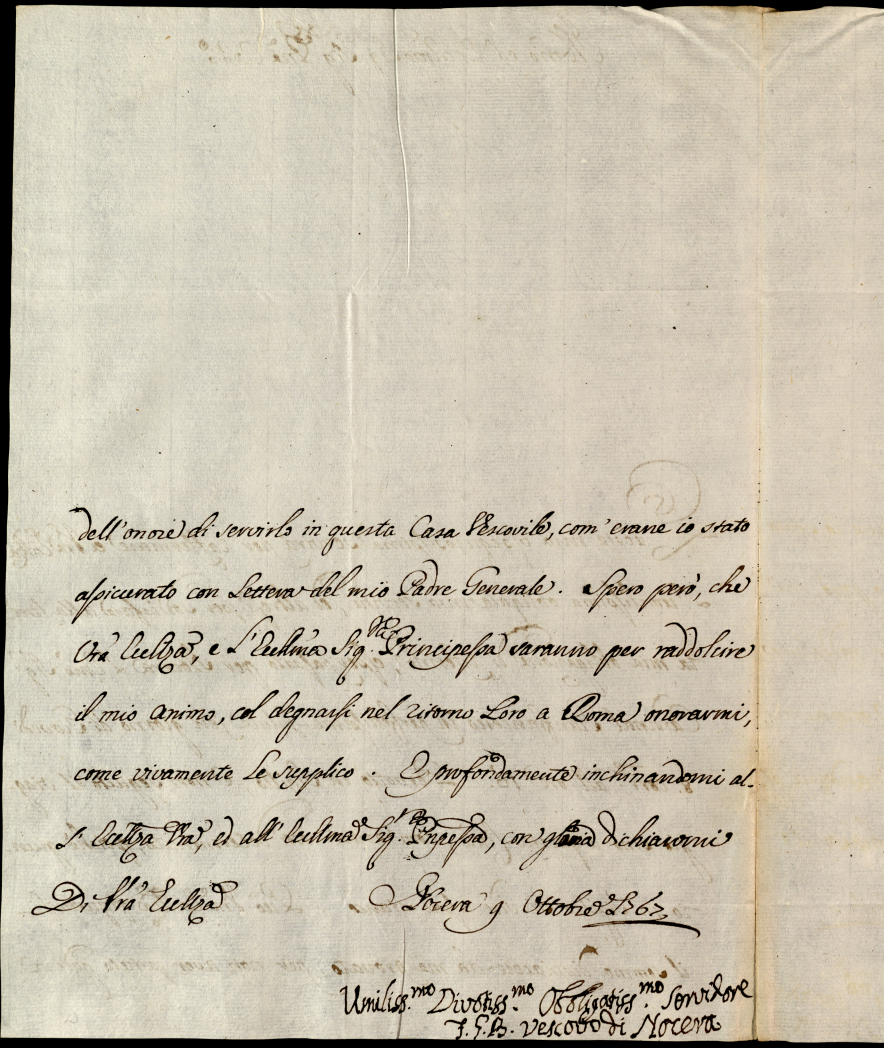 dell'onore di servirlo in questa Casa Vescovile, com'erane io stato
assicurato con Lettera del mio Padre Generale. Spero però, che
Vrã Eccllza, e l'Ecclma Sig.ra Principessa saranno per raddolcire
il mio animo, col degnarsi nel ritorno Loro a Roma onorarmi,
come vivamente Le supplico. E profondamente inchinandomi al-
l'Eccllza Vrã, ed all'Ecclma Sig.ra Pnpessa, con gloria dichiararmi
Di Vrã Eccllza Nocera 9 Ottobre 1767
Umiliss.mo Divotiss.mo Obbligatiss.mo Servidore
F. G. B. Vescovo di Nocera